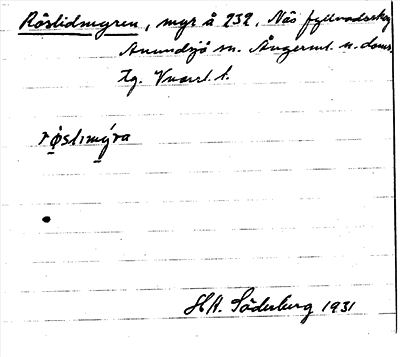 Röstidmyren, myr å 232, Näs fyllvadsskog
Anundsjö sn. Ångerml. n. doms.
tg. Vnorrl. l.
røstimýra
H.A. Söderberg 1931